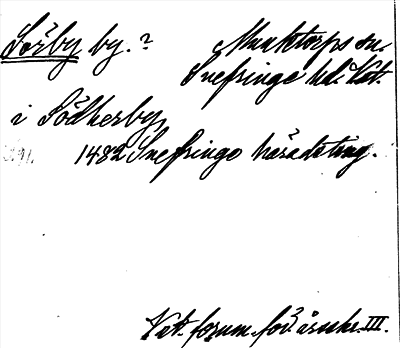 Sörby by.? Munktorps sn.
Snefringe hd. Vst.
i Södherby,
1482 Snefringe häradsting.
Vst. fornm. för. årsskr. III.